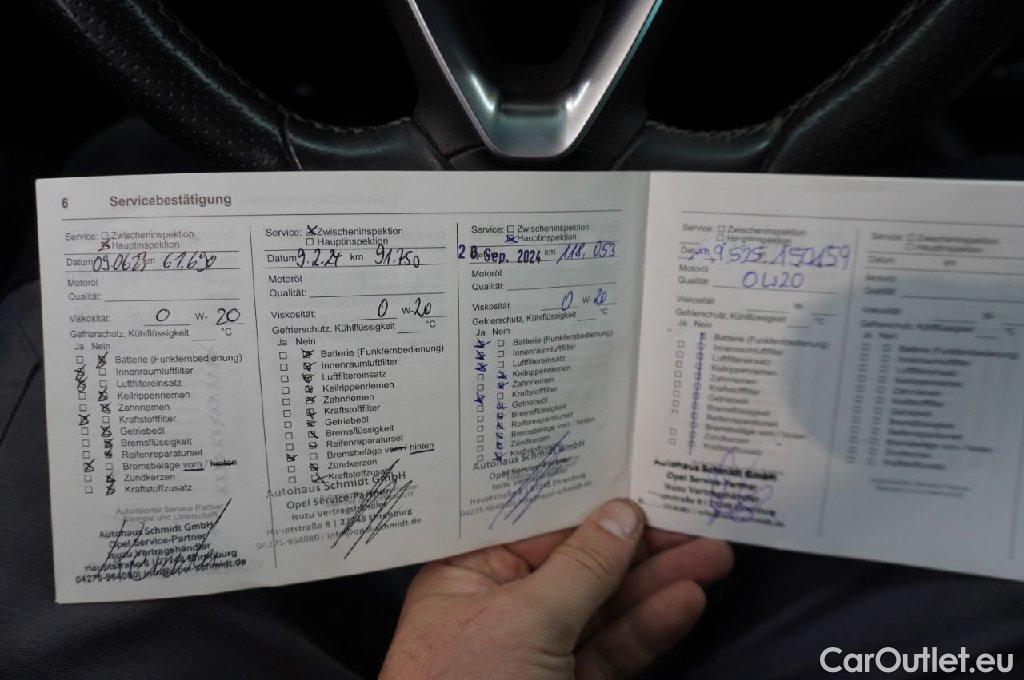 6 Servicebestätigung
Service: Zwischeninspektion
Hauptinspektion
Datum 09.06.23 km 61.690
Motoröl
Qualität:
Viskosität: 0 W- 20
Gefrierschutz, Kühlflüssigkeit °C
Ja Nein
Batterie (Funkfernbedienung)
Innenraumluftfilter
Luftfiltereinsatz
Keilrippenriemen
Zahnriemen
Kraftstofffilter
Getriebeöl
Bremsflüssigkeit
Reifenreparaturset
Bremsbeläge vorn / hinten
Zündkerzen
Kraftstoffzusatz
Autorisierter Service Partner
Stempel und Unterschrift
Autohaus Schmidt GmbH
Opel Service-Partner
Isuzu Vertragshändler
Hauptstraße 8 | 27248 Ehrenburg
04275-964080 | info@opel-schmidt.de
Service: Zwischeninspektion
Hauptinspektion
Datum 9.2.24 km 91.750
Motoröl
Qualität:
Viskosität: 0 W- 20
Gefrierschutz, Kühlflüssigkeit °C
Ja Nein
Batterie (Funkfernbedienung)
Innenraumluftfilter
Luftfiltereinsatz
Keilrippenriemen
Zahnriemen
Kraftstofffilter
Getriebeöl
Bremsflüssigkeit
Reifenreparaturset
Bremsbeläge vorn / hinten
Zündkerzen
Kraftstoffzusatz
Autohaus Schmidt GmbH
Opel Service-Partner
Isuzu Vertragshändler
Hauptstraße 8 | 27248 Ehrenburg
Service: Zwischeninspektion
Hauptinspektion
Sep. 2024 km 118.053
Motoröl
Qualität:
Viskosität: 0 W- 20
Gefrierschutz, Kühlflüssigkeit °C
Ja Nein
Batterie (Funkfernbedienung)
Innenraumluftfilter
Luftfiltereinsatz
Keilrippenriemen
Zahnriemen
Kraftstofffilter
Getriebeöl
Bremsflüssigkeit
Reifenreparaturset
Bremsbeläge vorn / hinten
Zündkerzen
Kraftstoffzusatz
Autohaus Schmidt GmbH
Opel Service-Partner
Isuzu Vertragshändler
Hauptstraße 8 | 27248 Ehrenburg
Service: Zwischeninspektion
Hauptinspektion
Datum 150159
Motoröl
Qualität: 0W20
Viskosität: W-
Gefrierschutz, Kühlflüssigkeit °C
Ja Nein
Batterie (Funkfernbedienung)
Innenraumluftfilter
Luftfiltereinsatz
Keilrippenriemen
Zahnriemen
Kraftstofffilter
Getriebeöl
Bremsflüssigkeit
Reifenreparaturset
Bremsbeläge vorn / hinten
Zündkerzen
Kraftstoffzusatz
Autohaus Schmidt GmbH
Opel Service-Partner
Isuzu Vertragshändler
Service: Zwischeninspektion
Hauptinspektion
Datum km
Motoröl
Qualität:
Viskosität:
Gefrierschutz, Kühlflüssigkeit
Ja Nein
Batterie (Funkfernbedienung)
Innenraumluftfilter
Luftfiltereinsatz
Keilrippenriemen
Zahnriemen
Kraftstofffilter
Getriebeöl
Bremsflüssigkeit
Reifenreparaturset
Bremsbeläge vorn / hinten
Zündkerzen
Kraftstoffzusatz
CarOutlet.eu